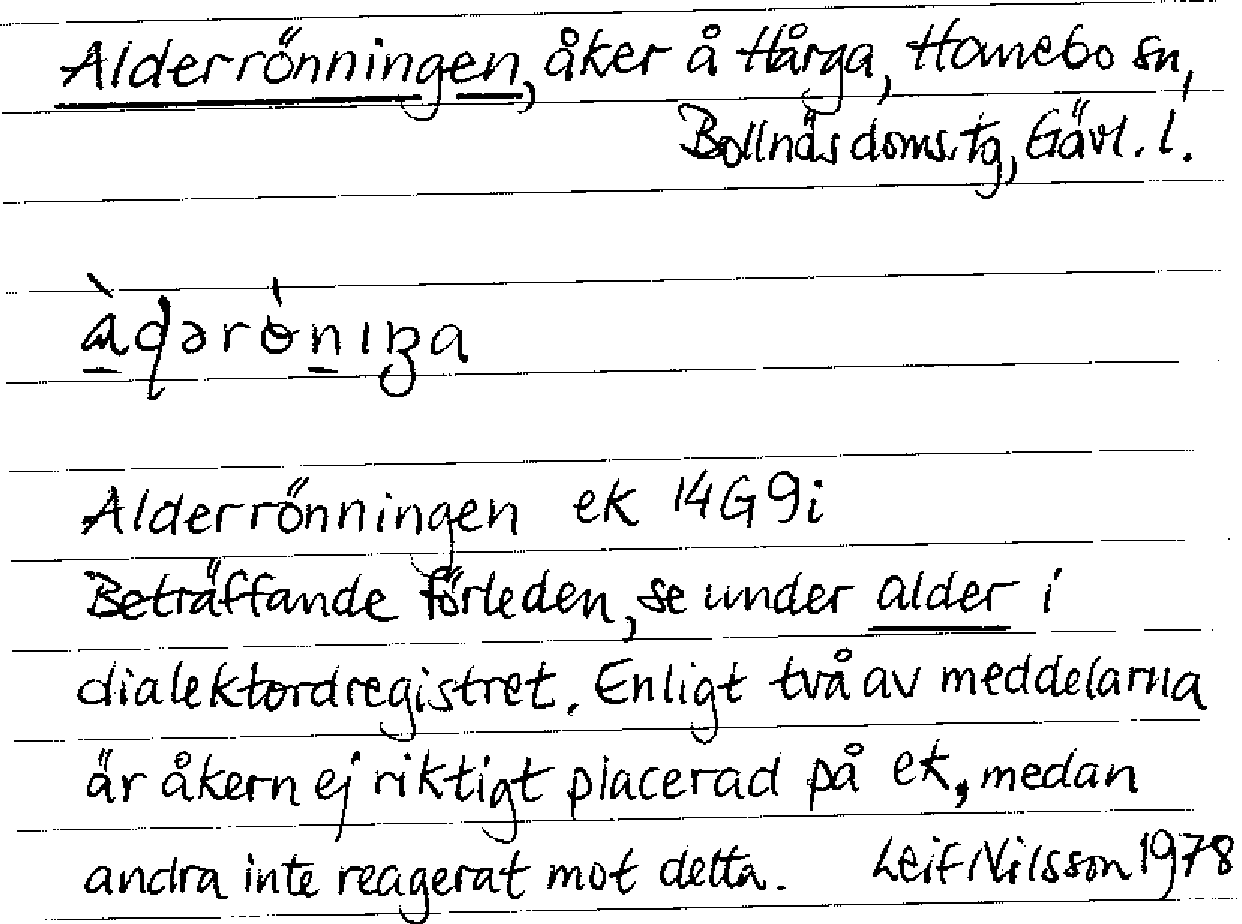 Alderrönningen, åker å Hårga, Hanebo sn,
Bollnäs doms.tg, Gävl. l.
Alderrönningen ek 14G9i
Beträffande förleden, se under alder i
dialektordregistret. Enligt två av meddelarna
är åkern ej riktigt placerad på ek, medan
andra inte reagerat mot detta. Leif Nilsson 1978